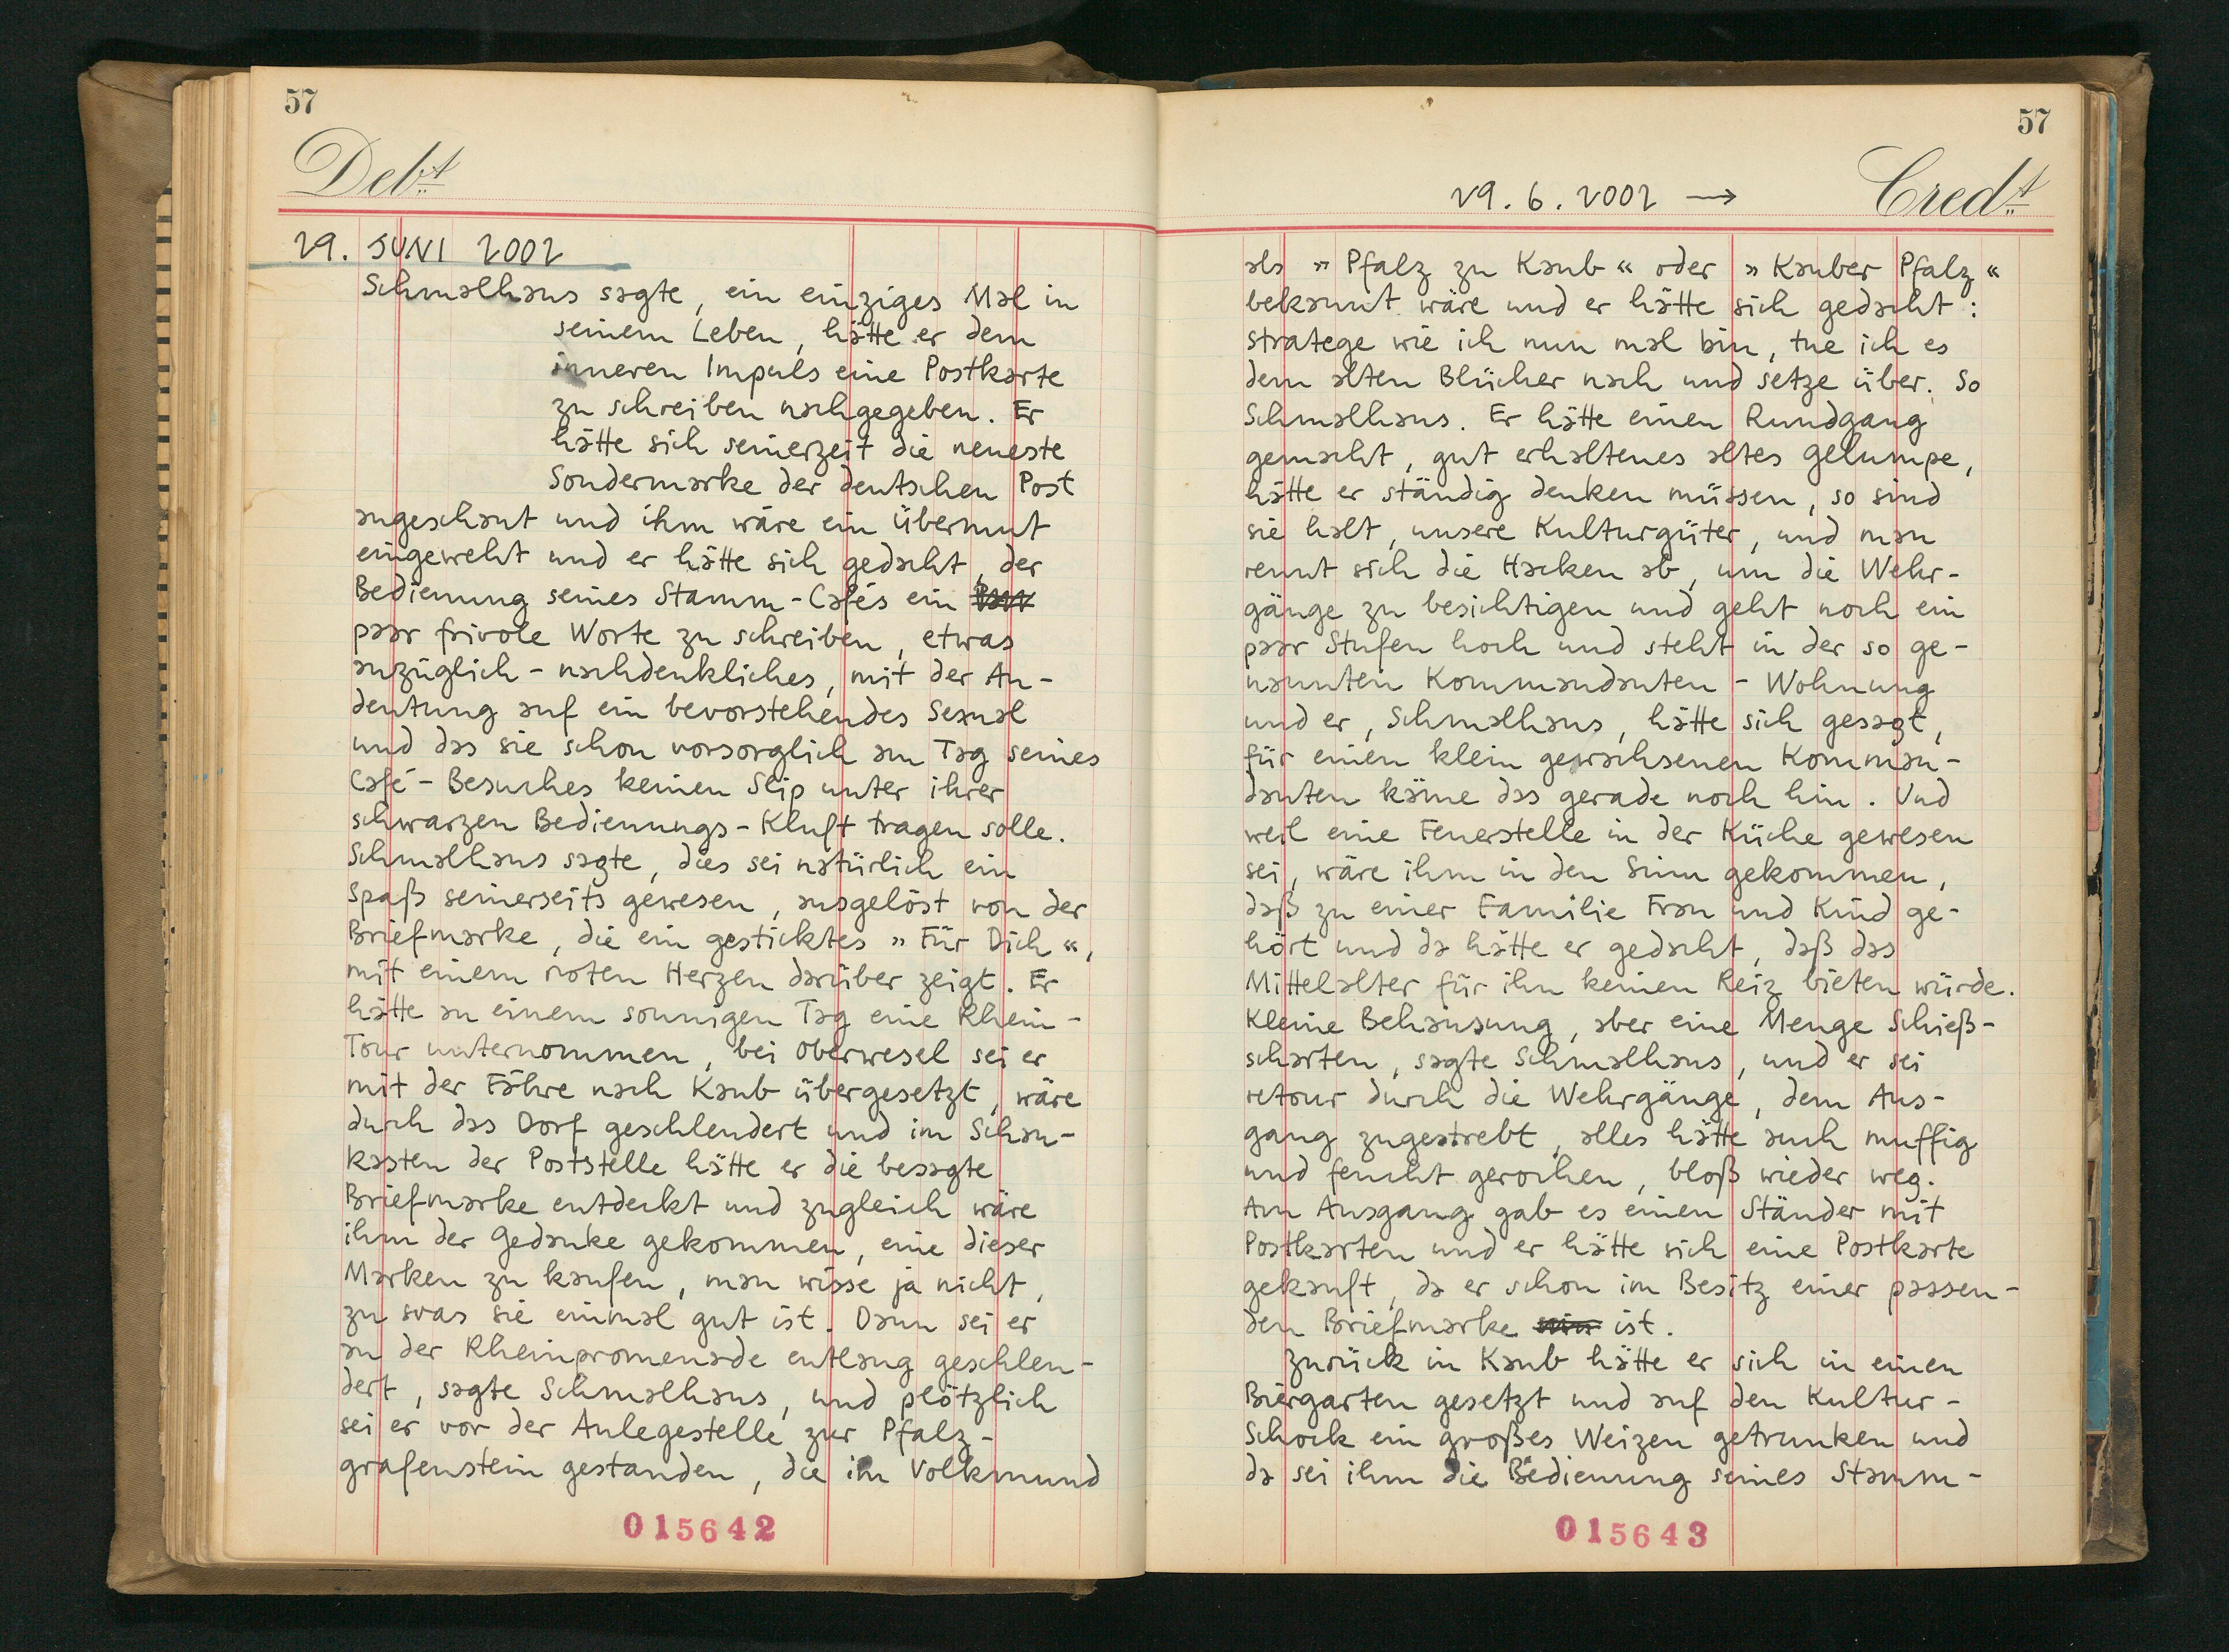 57
Debt
29. JUNI 2002
Schmalhans sagte, ein einziges Mal in
seinem Leben, hätte er dem
inneren Impuls eine Postkarte
zu schreiben nachgegeben. Er
hätte sich seinerzeit die neueste
Sondermarke der deutschen Post
angeschaut und ihm wäre ein Übermut
eingeweht und er hätte sich gedacht, der
Bedienung seines Stamm-Cafés ein
paar frivole Worte zu schreiben, etwas
anzüglich-nachdenkliches, mit der An-
deutung auf ein bevorstehendes Sexual
und das sie schon vorsorglich am Tag seines
Café-Besuches keinen Slip unter ihrer
schwarzen Bedienungs-Kluft tragen solle.
Schmalhans sagte, dies sei natürlich ein
Spaß seinerseits gewesen, ausgelöst von der
Briefmarke, die ein gesticktes »Für Dich«,
mit einem roten Herzen darüber zeigt. Er
hätte an einem sonnigen Tag eine Rhein-
Tour unternommen, bei Oberwesel sei er
mit der Fähre nach Kaub übergesetzt, wäre
durch das Dorf geschlendert und im Schau-
kasten der Poststelle hätte er die besagte
Briefmarke entdeckt und zugleich wäre
ihm der Gedanke gekommen, eine dieser
Marken zu kaufen, man wisse ja nicht,
zu was sie einmal gut ist. Dann sei er
an der Rheinpromenade entlang geschlen-
dert, sagte Schmalhans, und plötzlich
sei er vor der Anlegestelle zur Pfalz-
grafenstein gestanden, die im Volksmund
015642
57
29.6.2002 →
Credt
als »Pfalz zu Kaub« oder »Kauber Pfalz«
bekannt wäre und er hätte sich gedacht:
Stratege wie ich nun mal bin, tue ich es
dem alten Blücher nach und setze über. So
Schmalhans. Er hätte einen Rundgang
gemacht, gut erhaltenes altes Gelumpe,
hätte er ständig denken müssen, so sind
sie halt, unsere Kulturgüter, und man
rennt sich die Hacken ab, um die Wehr-
gänge zu besichtigen und geht noch ein
paar Stufen hoch und steht in der so ge-
nannten Kommandanten-Wohnung
und er, Schmalhans, hätte sich gesagt,
für einen klein gewachsenen Komman-
danten käme das gerade noch hin. Und
weil eine Feuerstelle in der Küche gewesen
sei, wäre ihm in den Sinn gekommen,
daß zu einer Familie Frau und Kind ge-
hört und da hätte er gedacht, daß das
Mittelalter für ihn keinen Reiz bieten würde.
Kleine Behausung, aber eine Menge Schieß-
scharten, sagte Schmalhans, und er sei
retour durch die Wehrgänge, dem Aus-
gang zugestrebt, alles hätte auch muffig
und feucht gerochen, bloß wieder weg.
Am Ausgang gab es einen Ständer mit
Postkarten und er hätte sich eine Postkarte
gekauft, da er schon im Besitz einer passen-
den Briefmarke ist.
Zurück in Kaub hätte er sich in einen
Biergarten gesetzt und auf den Kultur-
Schock ein großes Weizen getrunken und
da sei ihm die Bedienung seines Stamm-
015643